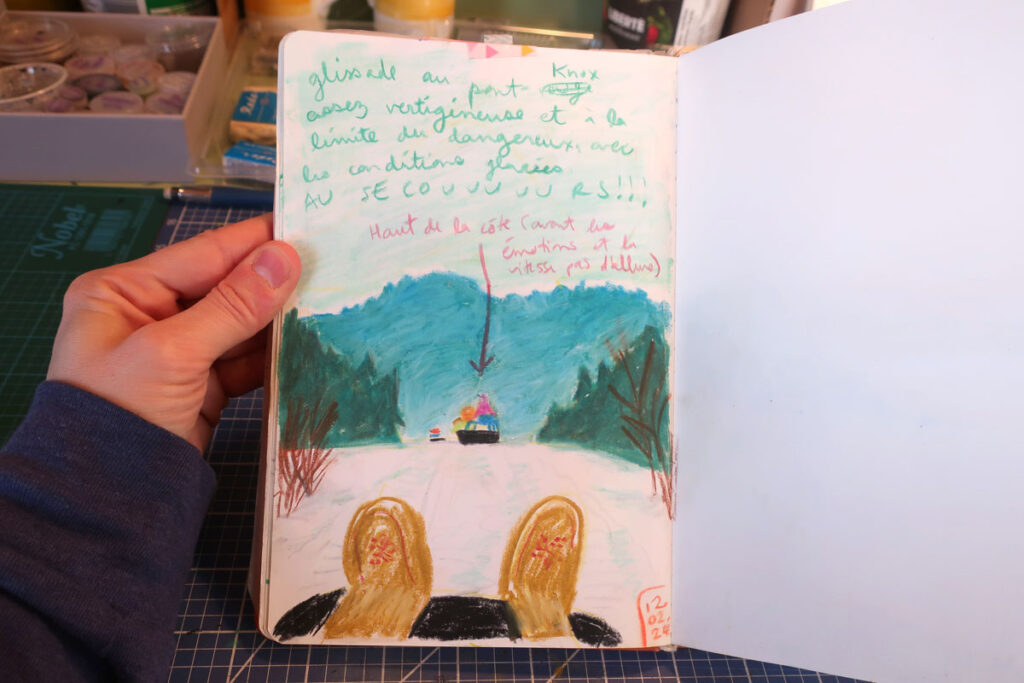 LIBERTÉ
glissade au pont Knox
assez vertigineuse et à la
limite du dangereux, avec
les conditions glacées.
AU SECOUUUUURS!!!
Haut de la côte (avant les
émotions et la
vitesse pas d'allure)
Nobel
12
02.
24